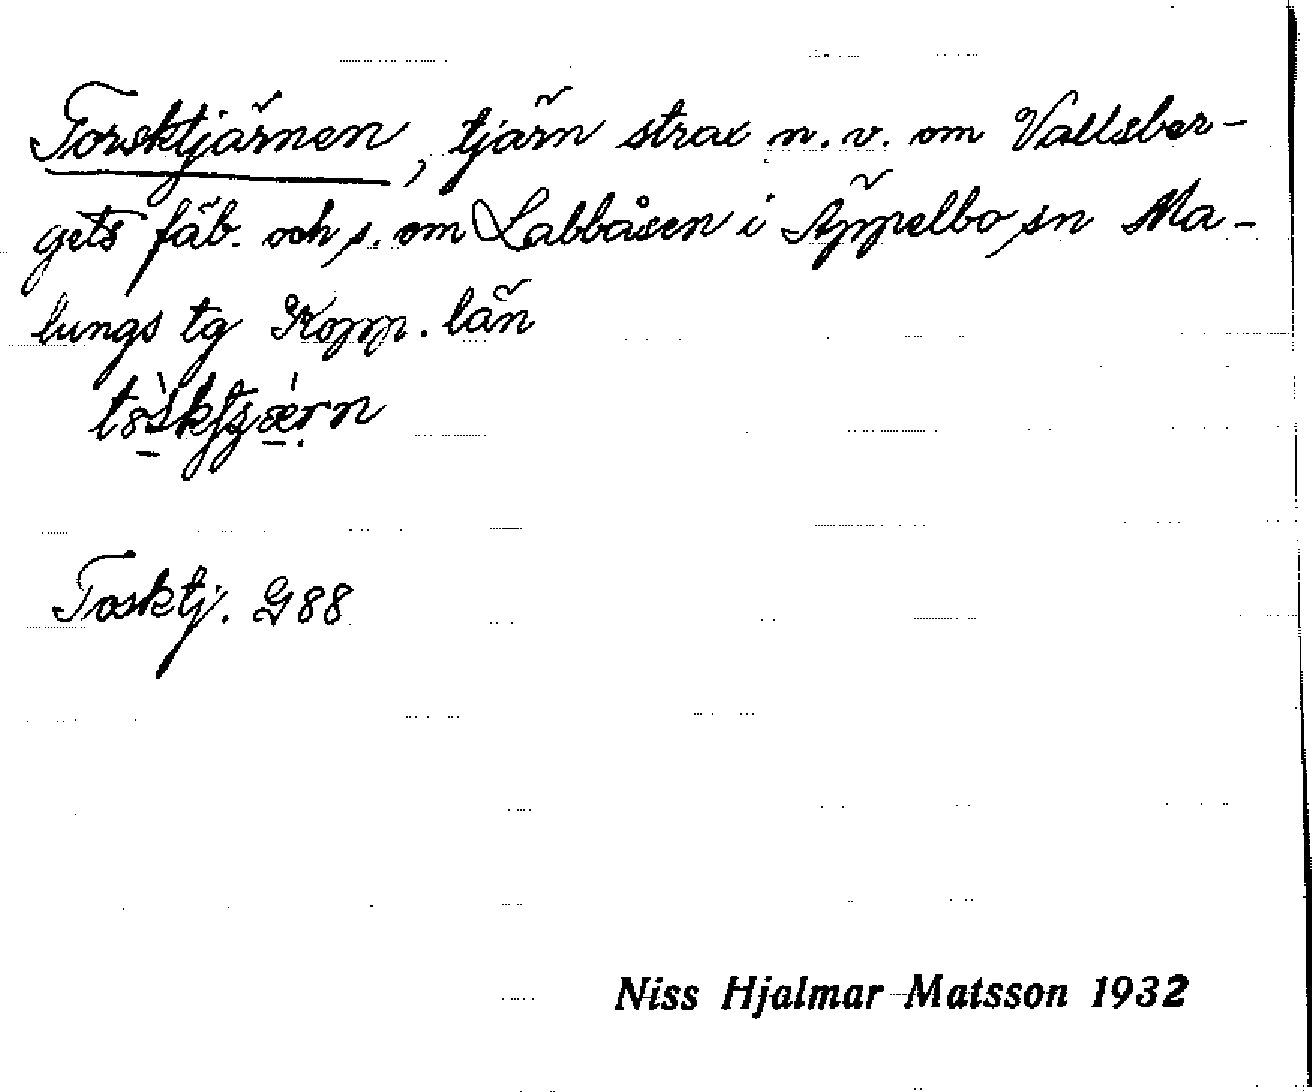 Torsktjärnen, tjärn strax n.v. om Vallsber-
gets fäb. och s. om Labbåsen i Äppelbo sn Ma-
lungs tg Kopp. län
Tosktj. G88
Niss Hjalmar Matsson 1932